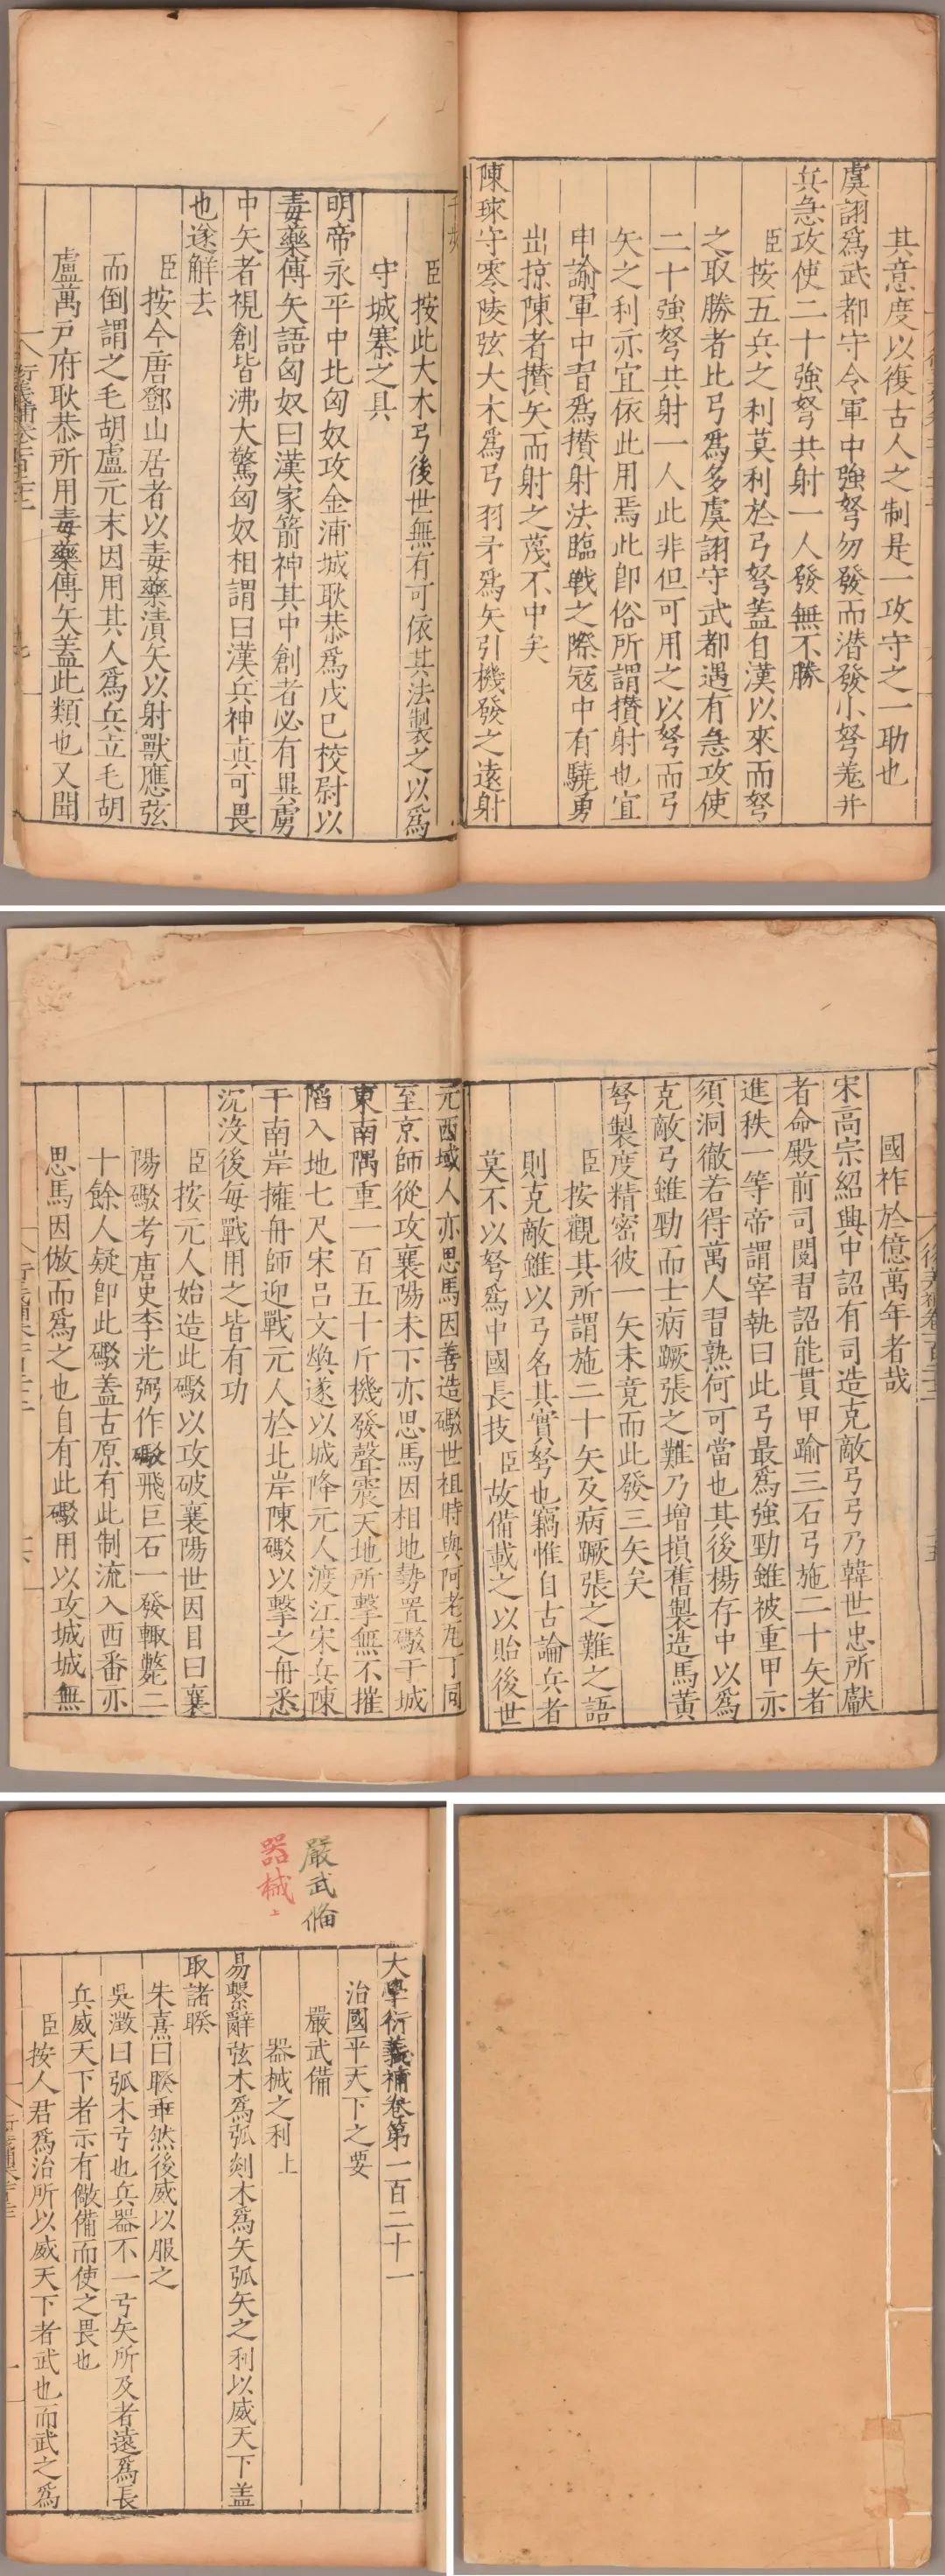 其意度以復古人之制是一攻守之一助也
虞詡爲武都守令軍中強弩勿發而潜發小弩羗并
兵急攻使二十強弩共射一人發無不勝
臣按五兵之利莫利於弓弩蓋自漢以來而弩
之取勝者比弓爲多虞詡守武都遇有急攻使
二十強弩共射一人此非但可用之以弩而弓
矢之利亦宜依此用焉此卽俗所謂攅射也宜
申諭軍中習爲攅射法臨戰之際冦中有驍勇
出掠陳者攅矢而射之蔑不中矣
陳球守零陵弦大木爲弓羽矛爲矢引機發之遠射
千歩
臣按此大木弓後世無有可依其法製之以爲
守城寨之具
明帝永平中北匈奴攻金浦城耿恭爲戊巳校尉以
毒藥傅矢語匈奴曰漢家箭神其中創者必有異虜
中矢者視創皆沸大驚匈奴相謂曰漢兵神真可畏
也遂解去
臣按今唐鄧山居者以毒藥漬矢以射獸應弦
而倒謂之毛胡盧元末因用其人爲兵立毛胡
盧萬戸府耿恭所用毒藥傅矢蓋此類也又聞
國祚於億萬年者哉
宋高宗紹興中詔有司造克敵弓弓乃韓世忠所獻
者命殿前司閲習詔能貫甲踰三石弓施二十矢者
進秩一等帝謂宰執曰此弓最爲強勁雖被重甲亦
須洞徹若得萬人習熟何可當也其後楊存中以爲
克敵弓雖勁而士病蹶張之難乃增損舊製造馬黃
弩製度精密彼一矢未竟而此發三矢矣
臣按觀其所謂施二十矢及病蹶張之難之語
則克敵雖以弓名其實弩也竊惟自古論兵者
莫不以弩爲中國長技臣故備載之以貽後世
元西域人亦思馬因善造礮世祖時與阿老瓦丁同
至京師從攻襄陽未下亦思馬因相地勢置礮于城
東南隅重一百五十斤機發聲震天地所擊無不摧
陷入地七尺宋呂文煥遂以城降元人渡江宋兵陳
于南岸擁舟師迎戰元人於北岸陳礮以擊之舟悉
沉沒後每戰用之皆有功
臣按元人始造此礮以攻破襄陽世因目曰襄
陽礮考唐史李光弼作礮飛巨石一發輙斃二
十餘人疑卽此礮蓋古原有此制流入西番亦
思馬因倣而爲之也自有此礮用以攻城城無
嚴武俻
器械上
大學衍義補卷第一百二十一
治國平天下之要
嚴武備
器械之利上
易繫辭弦木爲弧剡木爲矢弧矢之利以威天下盖
取諸睽
朱熹曰睽乖然後威以服之
吳澂曰弧木弓也兵器不一弓矢所及者遠爲長
兵威天下者示有儆備而使之畏也
臣按人君爲治所以威天下者武也而武之爲